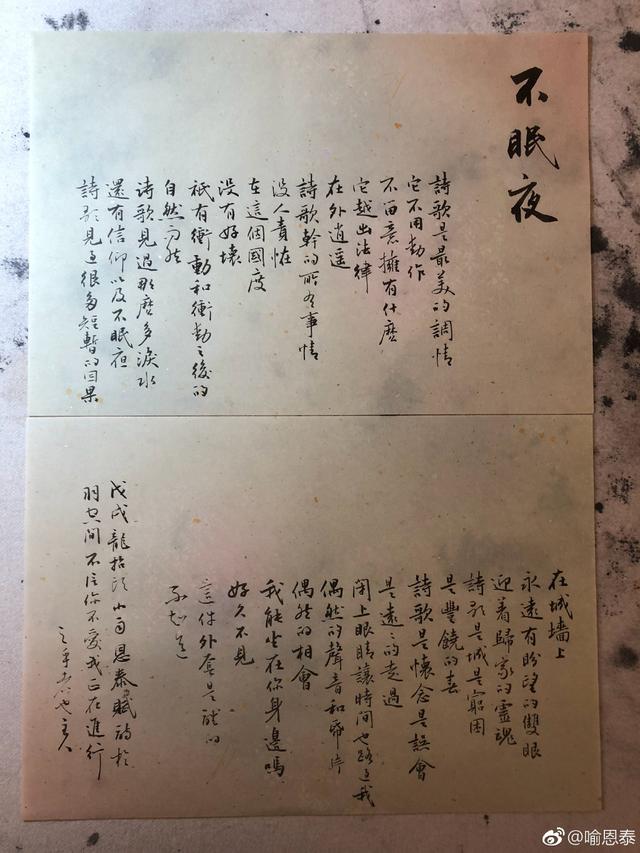 不眠夜
詩歌是最美的調情
它不用動作
不留意擁有什麼
它越出法律
在外逍遥
詩歌幹的所有事情
没人責怪
在這個國度
没有好壞
祇有衝動和衝動之後的
自然而然
诗歌見過那麼多淚水
還有信仰以及不眠夜
詩歌見過很多短暫的因果
在城墻上
永遠有盼望的雙眼
迎着歸家的靈魂
詩歌是城是窮困
是豐饒的春
詩歌是懷念是誤會
是遠遠的走過
閉上眼睛讓時間也路過我
偶然的聲音和
偶然的相會
我能坐在你身邊嗎
好久不見
這件外套是誰的
不知道
戊戌龍抬頭小雨恩泰賦詩於
羽也間不信你不愛我正在進行
也主人
@喻恩泰